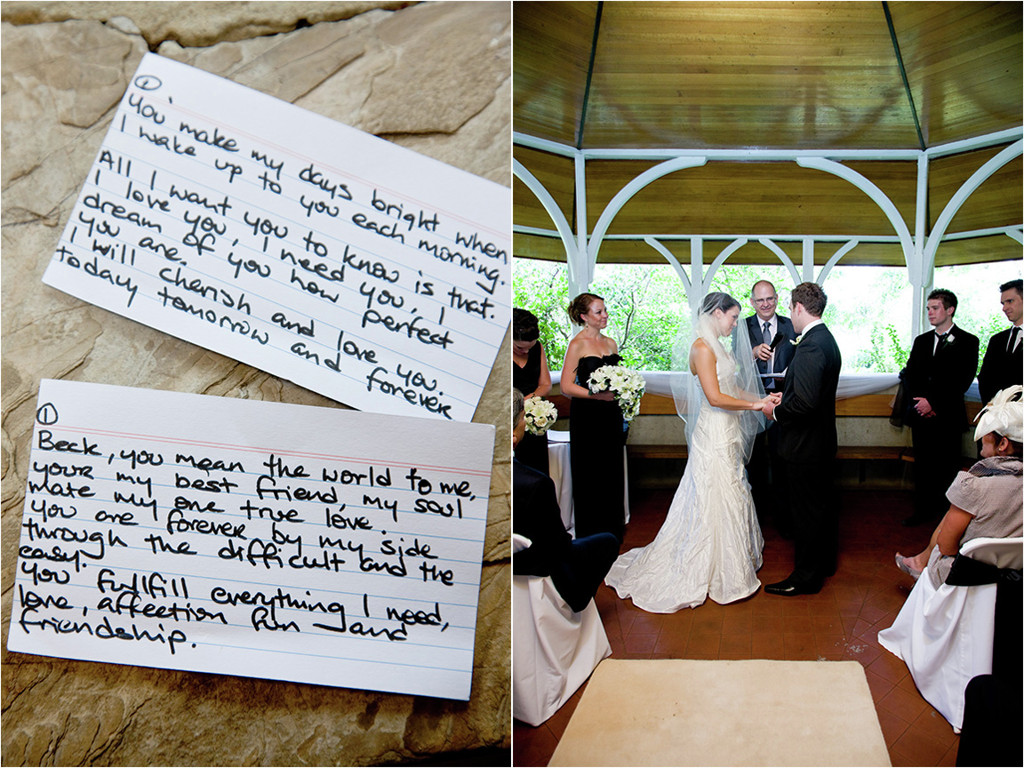 1
You make my days bright when
I wake up to you each morning.
All I want you to know is that
I love you, I need you, I
dream of you how perfect
you are.
I will cherish and love you
today tomorrow and forever.
1
Beck, you mean the world to me,
your my best friend, my soul
mate my one true love.
You are forever by my side
through the difficult and the
easy.
You fullfill everything I need,
love, affection fun and
friendship.